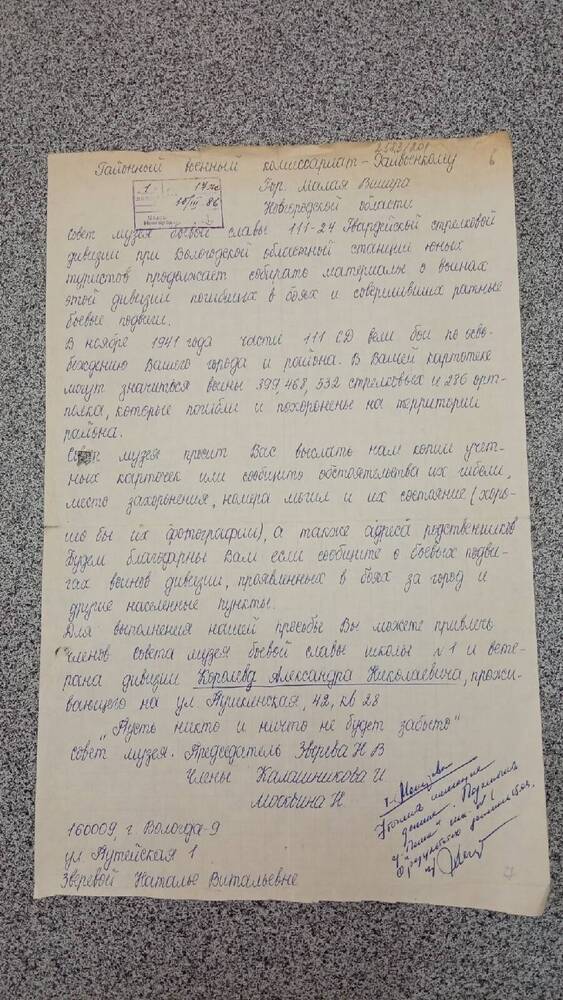 2523/201
6
Районный военный комиссариат - Райвоенкому
Гор. Малая Вишера
Новгородской области
1
17 ч
10/III 86
Совет музея боевой славы 111-24 Гвардейской стрелковой
дивизии при Вологодской областной станции юных
туристов продолжает собирать материалы о воинах
этой дивизии погибших в боях и совершивших ратные
боевые подвиги.
В ноябре 1941 года части 111 СД вели бои по осво-
бождению Вашего города и района. В Вашей картотеке
могут значиться воины 399, 468, 532 стрелковых и 286 арт-
полка, которые погибли и похоронены на территории
района.
Совет музея просит Вас выслать нам копии учет-
ных карточек или сообщить обстоятельства их гибели,
место захоронения, номера могил и их состояние (хоро-
шо бы их фотографии), а также адреса родственников
Будем благодарны Вам если сообщите о боевых подви-
гах воинов дивизии, проявленных в боях за город и
другие населенные пункты.
Для выполнения нашей просьбы Вы можете привлечь
членов совета музея боевой славы школы №1 и вете-
рана дивизии Королева Александра Николаевича, прожи-
вающего на ул Пушкинская, 42, кв 28
"Пусть никто и ничто не будет забыто"
Совет музея. Председатель Зверева Н В
Члены Калашникова И
Москвина Н
160009, г. Вологда-9
ул Путейская 1
Зверевой Наталье Витальевне
7